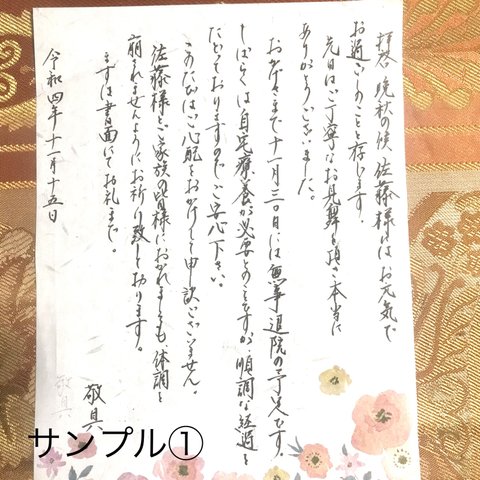 拝啓 晩秋の候 佐藤様にはお元気で
お過ごしのことと存じます。
先日はご丁寧なお見舞を頂き本当に
ありがとうございました。
おかげさまで十一月三十日には無事退院の予定です。
しばらくは自宅療養が必要とのことですが、順調な経過を
たどっておりますのでご安心下さい。
このたびはご心配をおかけして申訳ございません。
佐藤様とご家族の皆様におかれましても、体調を
崩されませんようにお祈り致しております。
まずは書面にてお礼まで。
敬具
令和四年十一月十五日
敬具
サンプル①